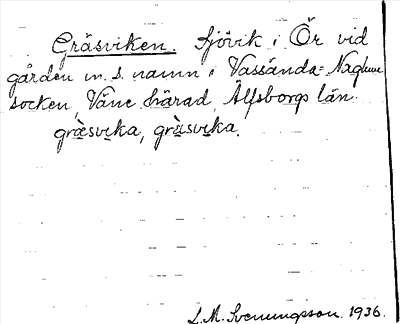 Gräsviken. Sjövik i Ör vid
gården m. s. namn i Vassända-Naglum
socken, Väne härad, Älfsborgs län.
græsvika, gräsvika.
L. M. Svenungsson. 1936.